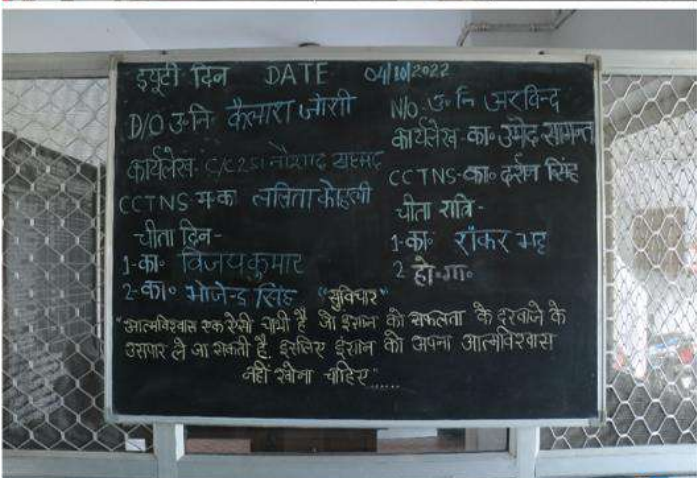 ड्यूटी दिन DATE 04/10/2022
D/O उ०नि० कैलाश जोशी
कार्यलेख० C/C 251 नौशाद अहमद
CCTNS म०का० ललिता कोहली
चीता दिन-
1-का० विजय कुमार
2-का० भोजेन्द्र सिंह
N/O. उ०नि० अरविन्द
कार्यलेख-का० उमेद सामन्त
CCTNS-का० दर्शन सिंह
चीता रात्रि-
1-का० शंकर भट्ट
2 हो०गा०
"सुविचार"
"आत्मविश्वास एक ऐसी चाभी है जो इंसान को सफलता के दरवाजे के
उसपार ले जा सकती है, इसलिए इंसान को अपना आत्मविश्वास
नहीं खोना चाहिए"......